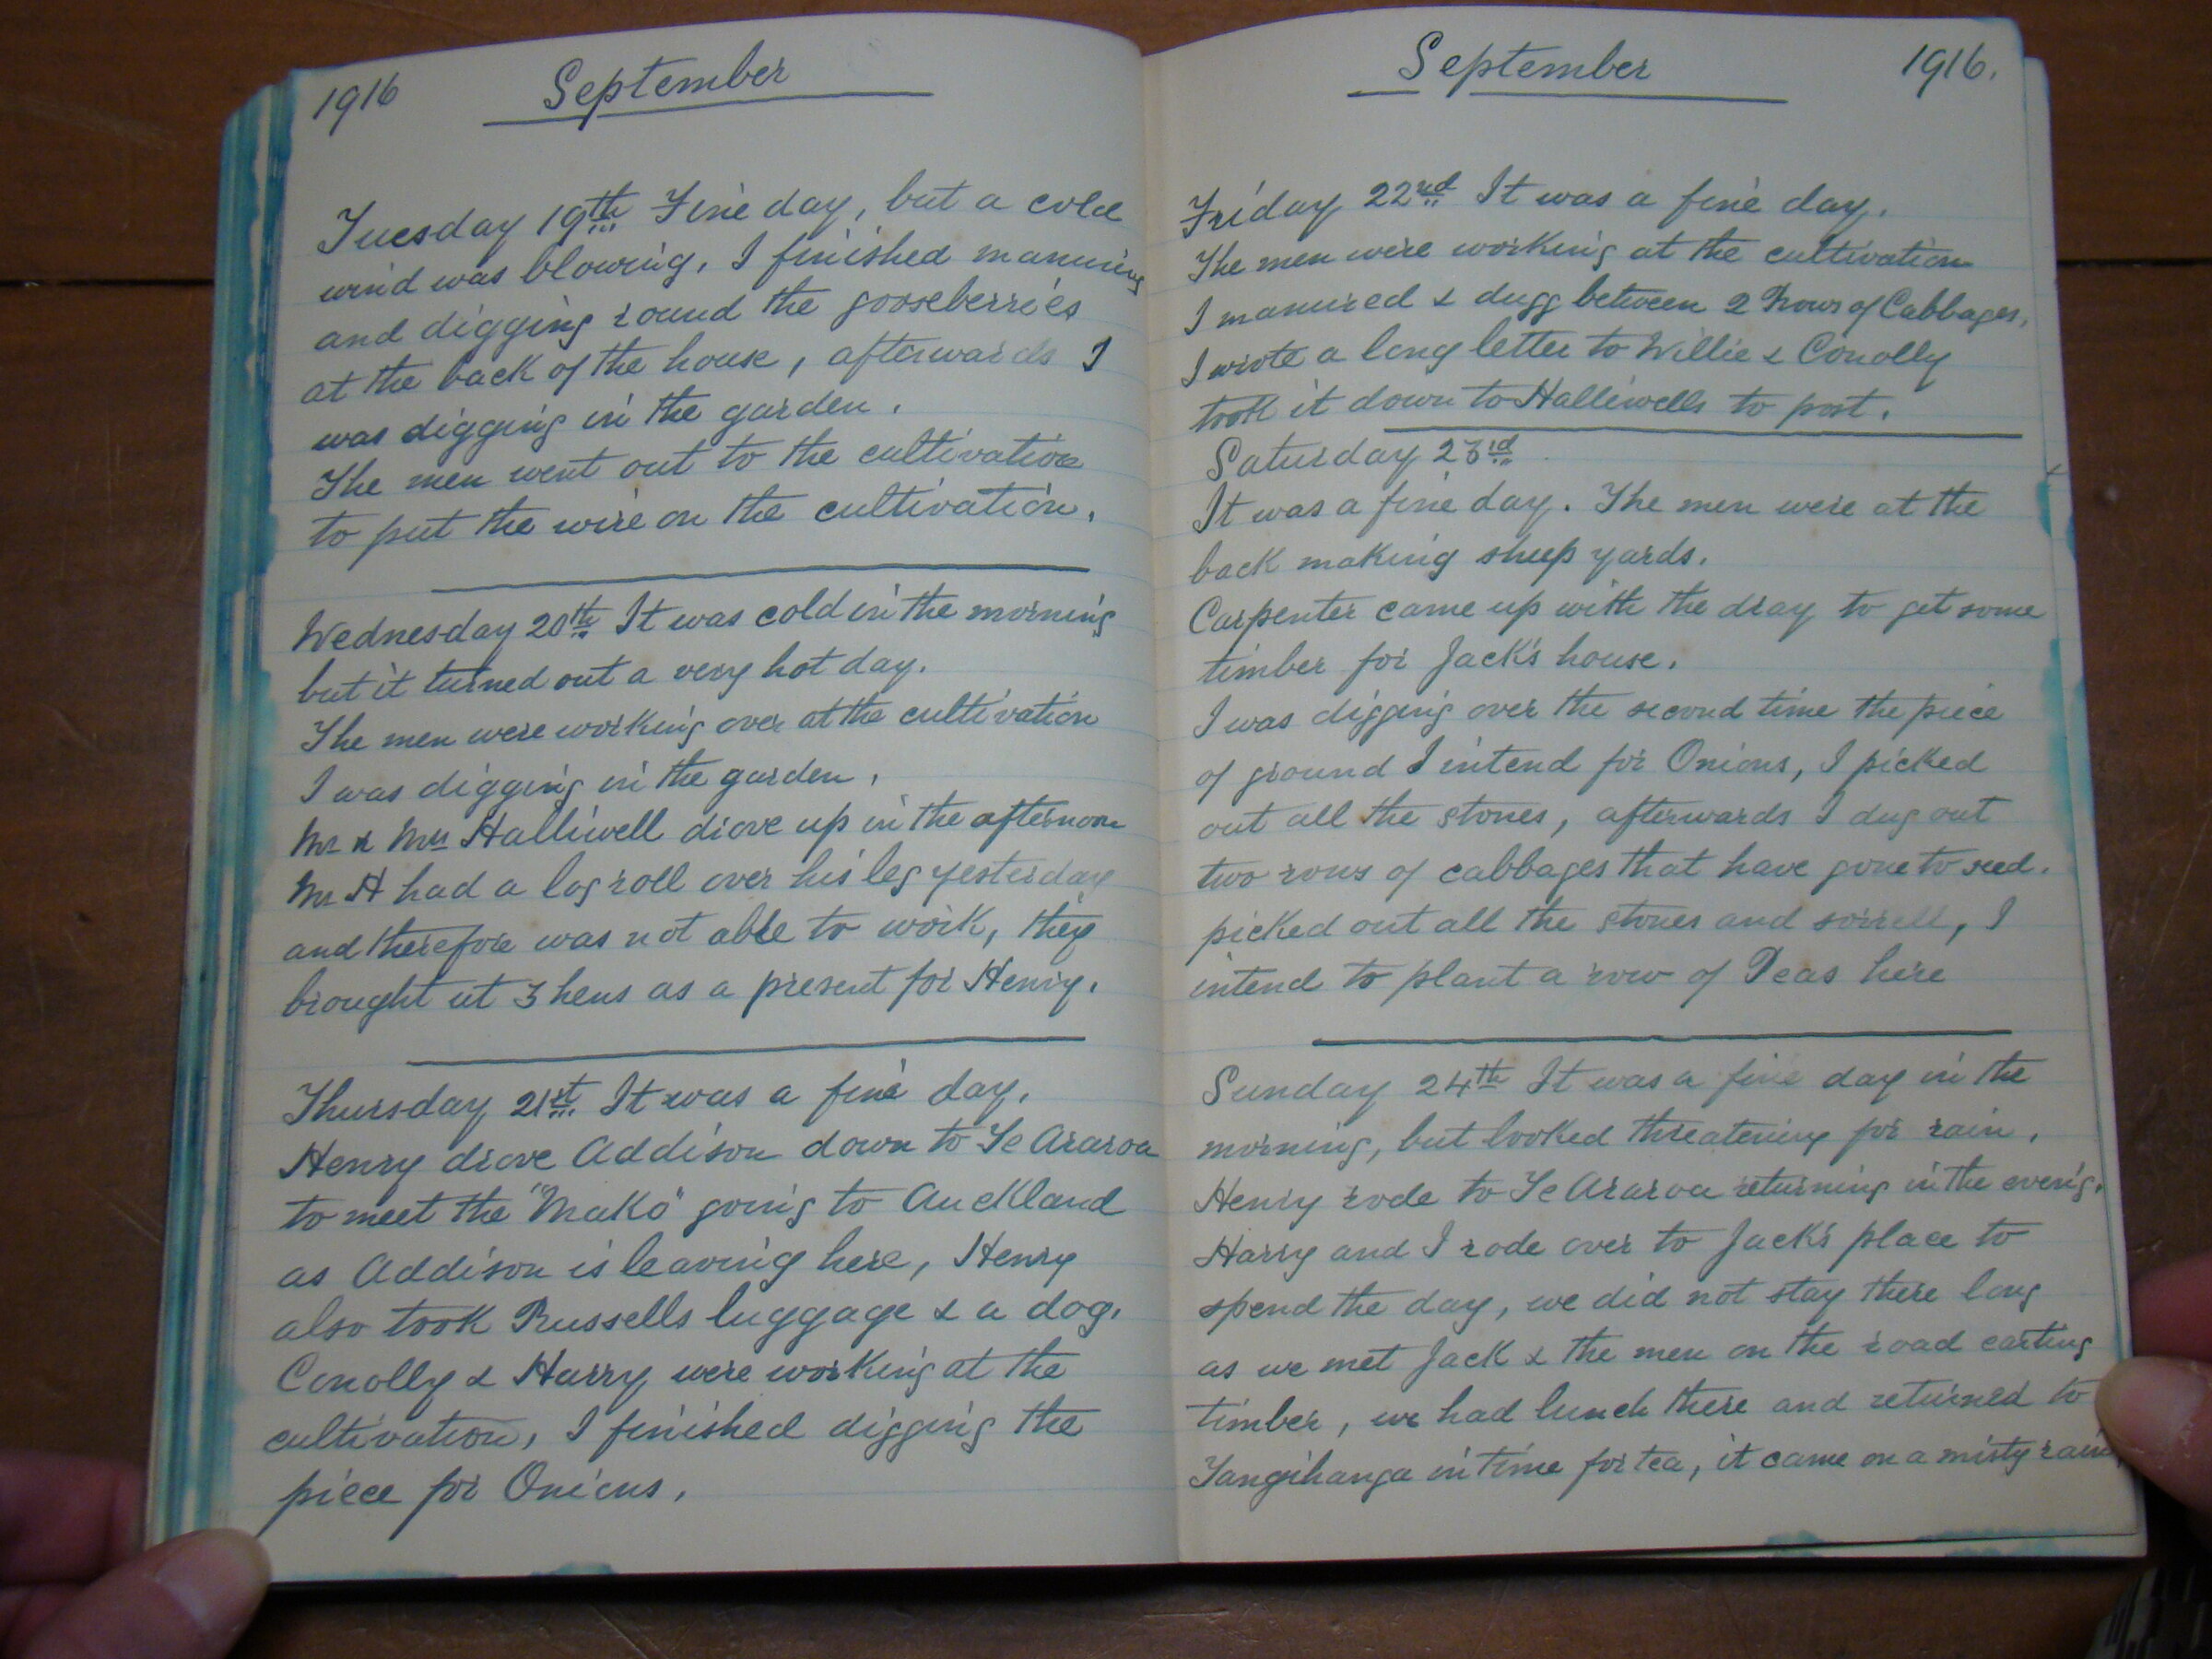 1916 September
Tuesday 19th Fine day, but a cold
wind was blowing, I finished manuring
and digging round the gooseberries
at the back of the house, afterwards I
was digging in the garden.
The men went out to the cultivation
to put the wire on the cultivation.
Wednesday 20th It was cold in the morning
but it turned out a very hot day.
The men were working over at the cultivation
I was digging in the garden.
Mr & Mrs Halliwell drove up in the afternoon
Mr H had a log roll over his leg yesterday
and therefore was not able to work, they
brought ut 3 hens as a present for Henry.
Thursday 21st It was a fine day.
Henry drove Addison down to Te Araroa
to meet the "Mako" going to Auckland
as Addison is leaving here, Henry
also took Russells luggage & a dog.
Conolly & Harry were working at the
cultivation, I finished digging the
piece for Onions.
September 1916.
Friday 22nd It was a fine day.
The men were working at the cultivation
I manured & dugg between 2 Rows of Cabbages,
I wrote a long letter to Willie & Conolly
took it down to Halliwells to post.
Saturday 23rd
It was a fine day. The men were at the
back making sheep yards.
Carpenter came up with the dray to get some
timber for Jack's house.
I was digging over the second time the piece
of ground I intend for Onions, I picked
out all the stones, afterwards I dug out
two rows of cabbages that have gone to seed.
picked out all the stones and sorrell, I
intend to plant a row of Peas here
Sunday 24th It was a fine day in the
morning, but looked threatening for rain.
Henry rode to Te Araroa returning in the evenig.
Harry and I rode over to Jack's place to
spend the day, we did not stay there long
as we met Jack & the men on the road carting
timber, we had lunch there and returned to
Tangihanga in time for tea, it came on a misty rain,